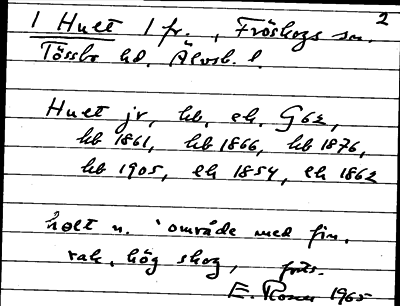 2
1 Huet 1 fr., Fröskogs sn.
Tössbo hd. Älvsb. l.
Huet jr, kb, ek. G 62,
kb 1861, kb 1866, kb 1876,
kb 1905, ek 1854, ek 1862
holt n. 'område med fin,
rak, hög skog, forts.
E. Rosen 1965